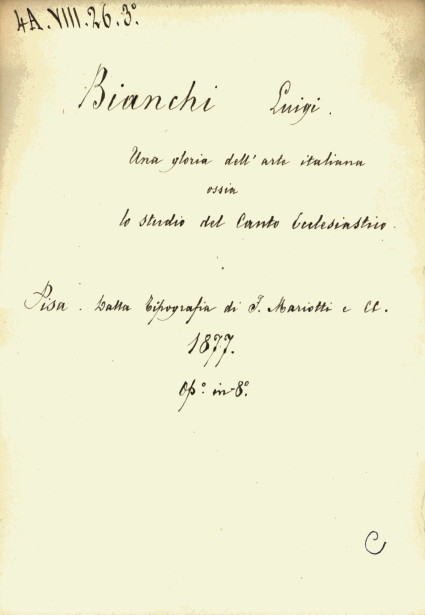 4A.VIII.26.3°.
Bianchi Luigi.
Una gloria dell'arte italiana
ossia
lo studio del Canto Ecclesiastico.
Pisa. Dalla Tipografia di F. Mariotti e CC.
1877.
Op.° in-8°.
C